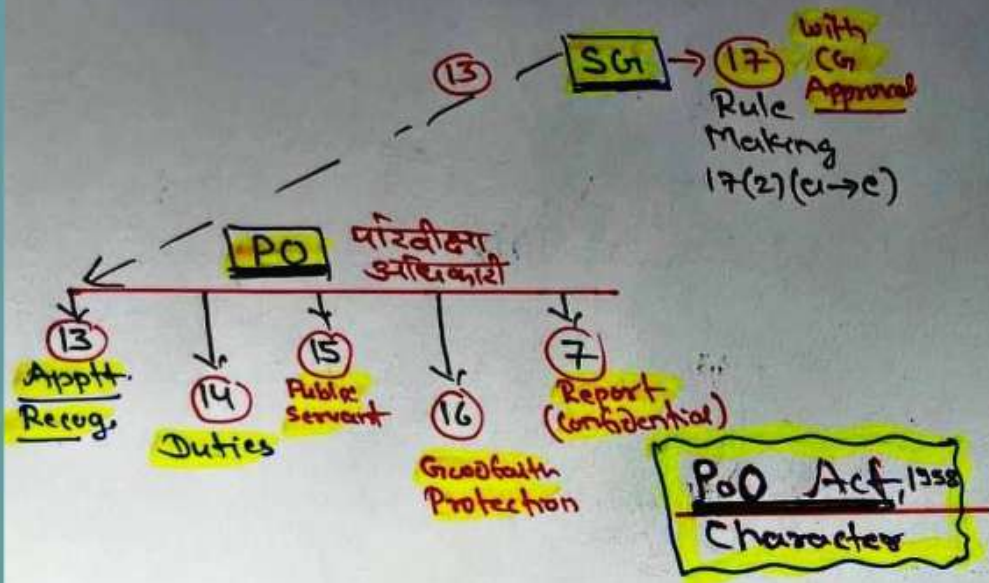 13
SG → 17 with
CG
Approval
Rule
Making
17(2)(a→e)
PO परिवीक्षा
अधिकारी
13
Apptt.
Recog.
14
Duties
15
Public
Servant
16
Goodfaith
Protection
7
Report
(Confidential)
PoO Act, 1958
Character